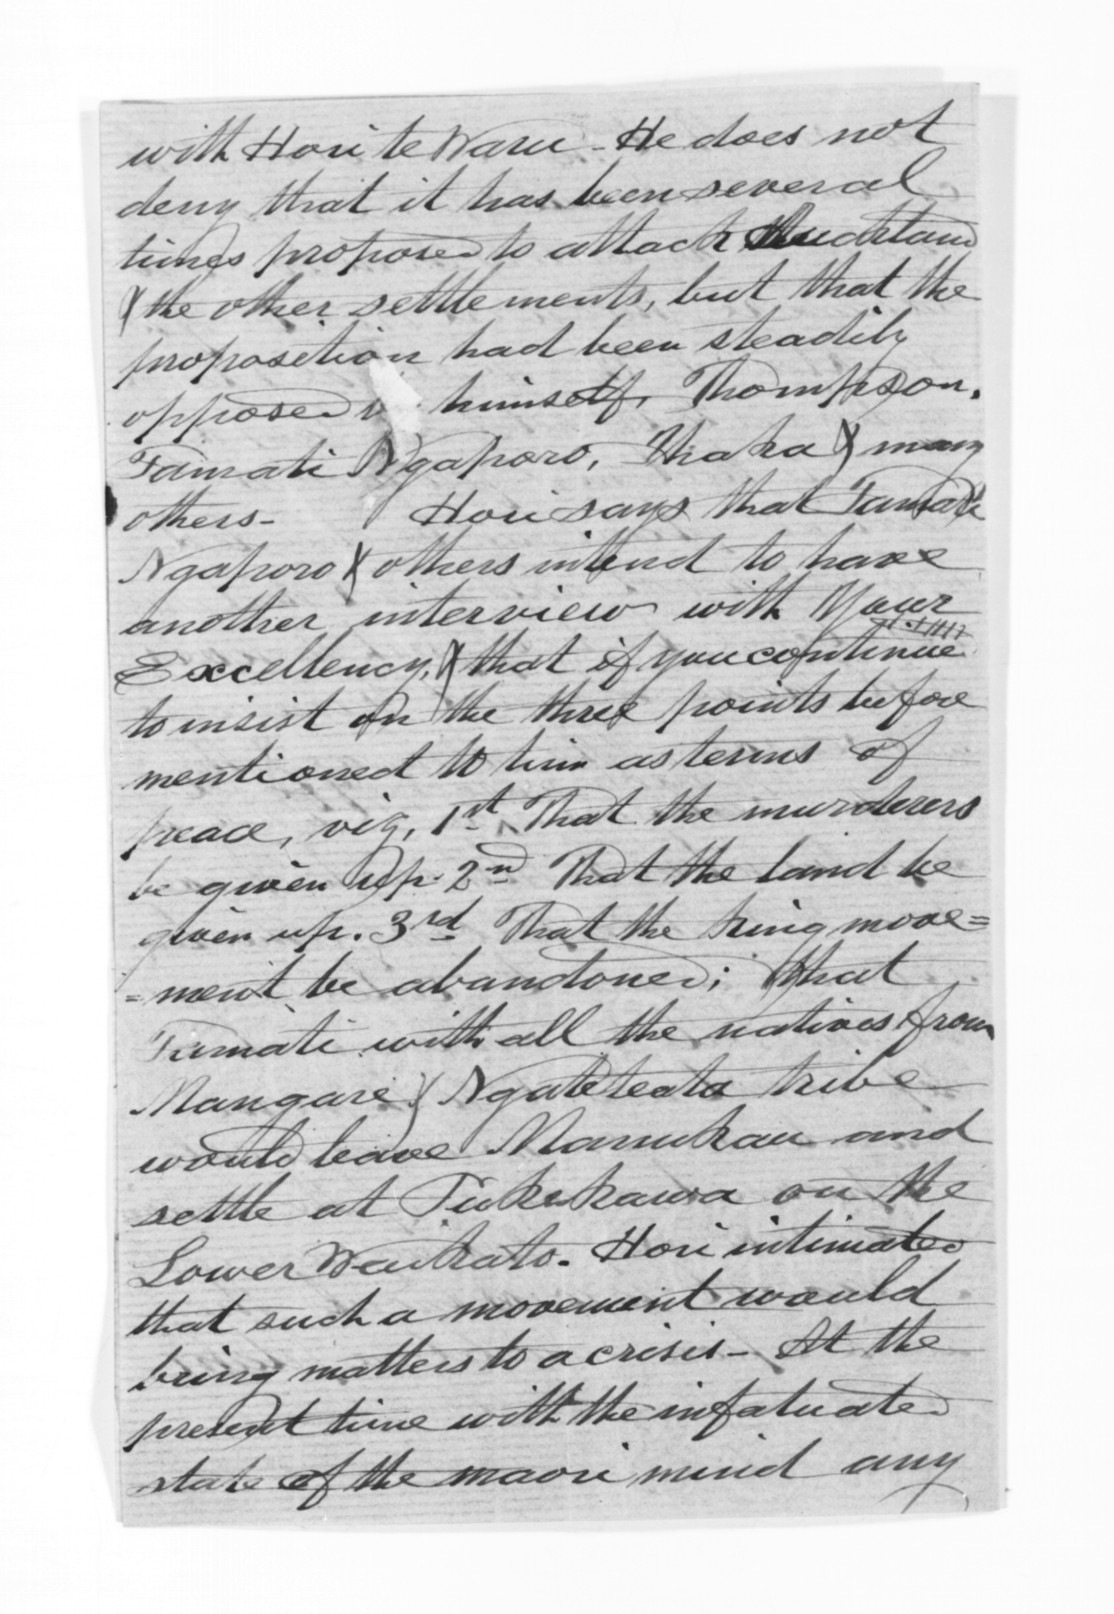 with Hori te Waru - He does not
deny that it has been several
times proposed to attack Auckland
& the other settlements, but that the
proposition had been steadily
opposed by himself, Thompson,
Tamati Ngaporo, Ihaka & many
others - Hori says that Tamati
Ngaporo & others intend to have
another interview with Your
Excellency, & that if you continue
to insist on the three points before
mentioned to him as terms of
peace, viz, 1st That the murderers
be given up. 2nd That the land be
given up. 3rd That the king move=
=ment be abandoned; that
Tamati with all the natives from
Mangare & Ngateteata tribe
would leave Manukau and
settle at Tukekawa on the
Lower Waikato. Hori intimated
that such a movement would
bring matters to a crisis - At the
present time with the infatuated
state of the maori mind any